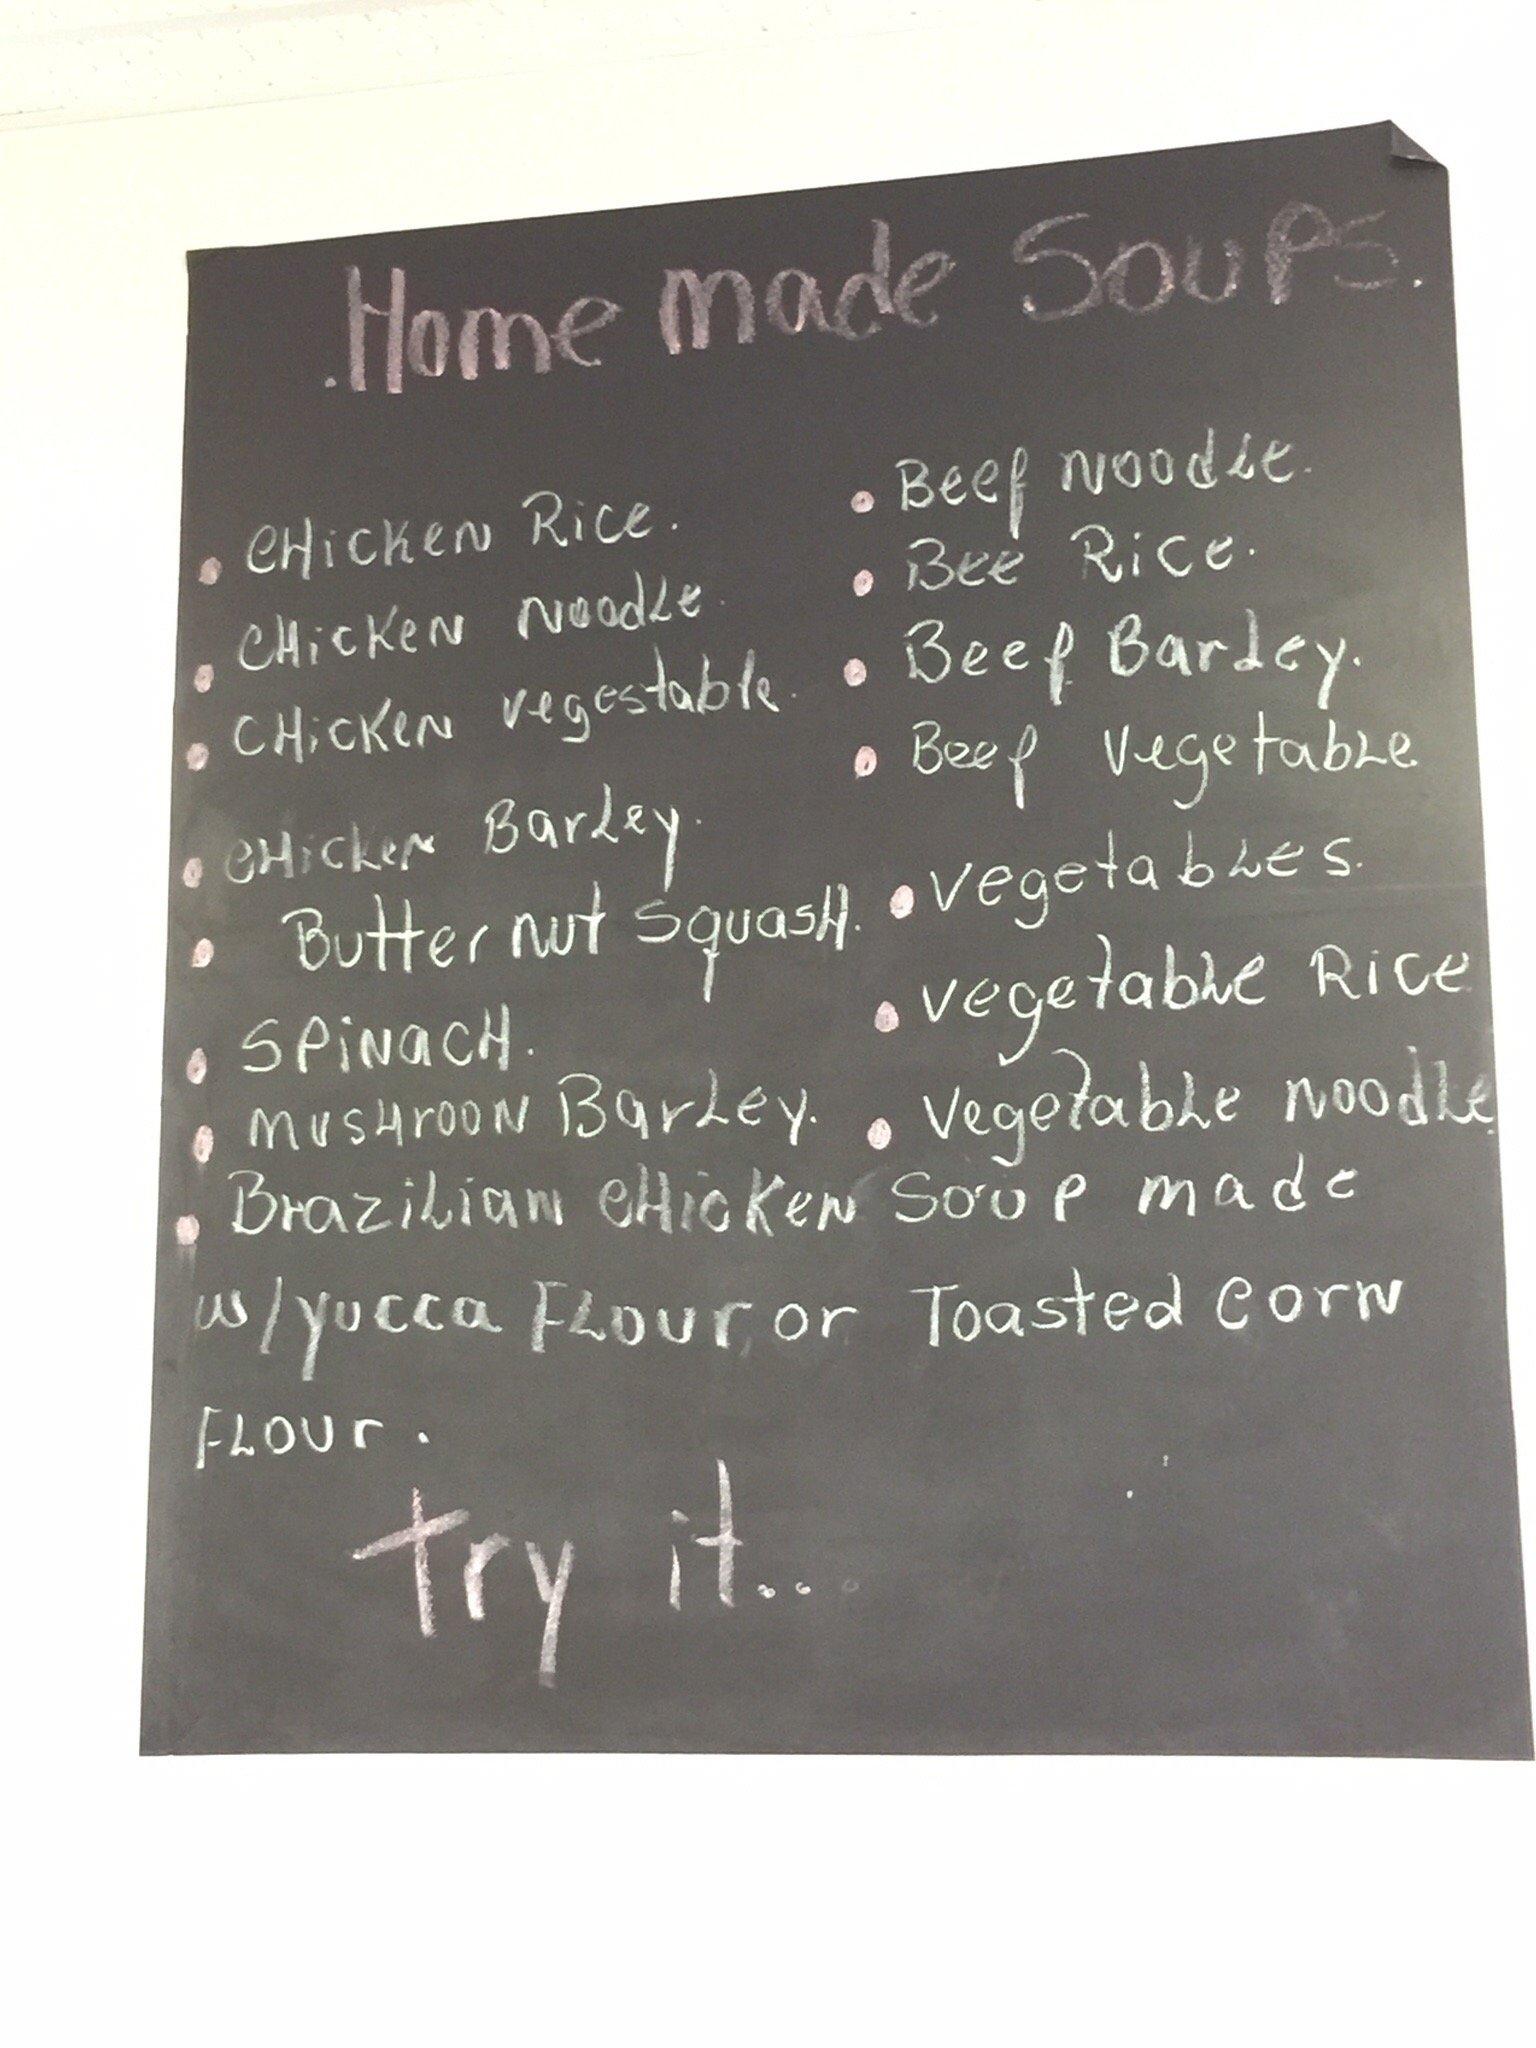 .Home made Soups.
• CHicKEN Rice.
• CHicKeN Noodle.
• CHicKEN vegestable.
• CHicKEN Barley.
• Butter nut SquasH.
• SPiNacH.
• MUSHroon Barley.
• Beef Noodle.
• Bee Rice.
• Beef Barley.
• Beef Vegetable
• vegetables.
• vegetable Rice
• vegetable Noodle
• Brazilian CHicKeN Soup made
w/yucca FLour, or Toasted corn
FLour.
Try it...